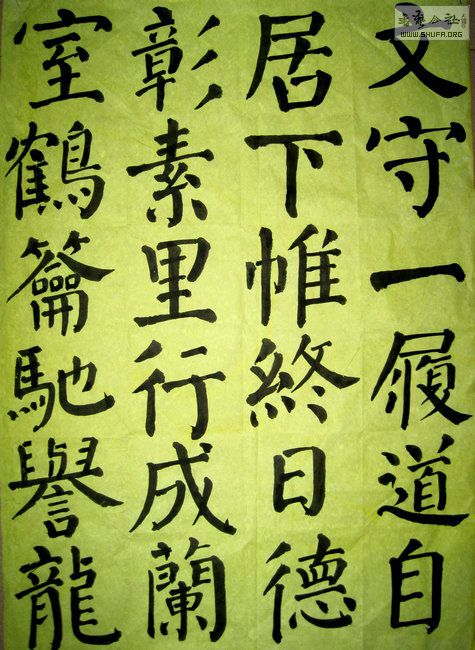 文守一履道自
居下帷終日德
彰素里行成蘭
室鶴籥馳譽龍
WWW.SHUFA.ORG